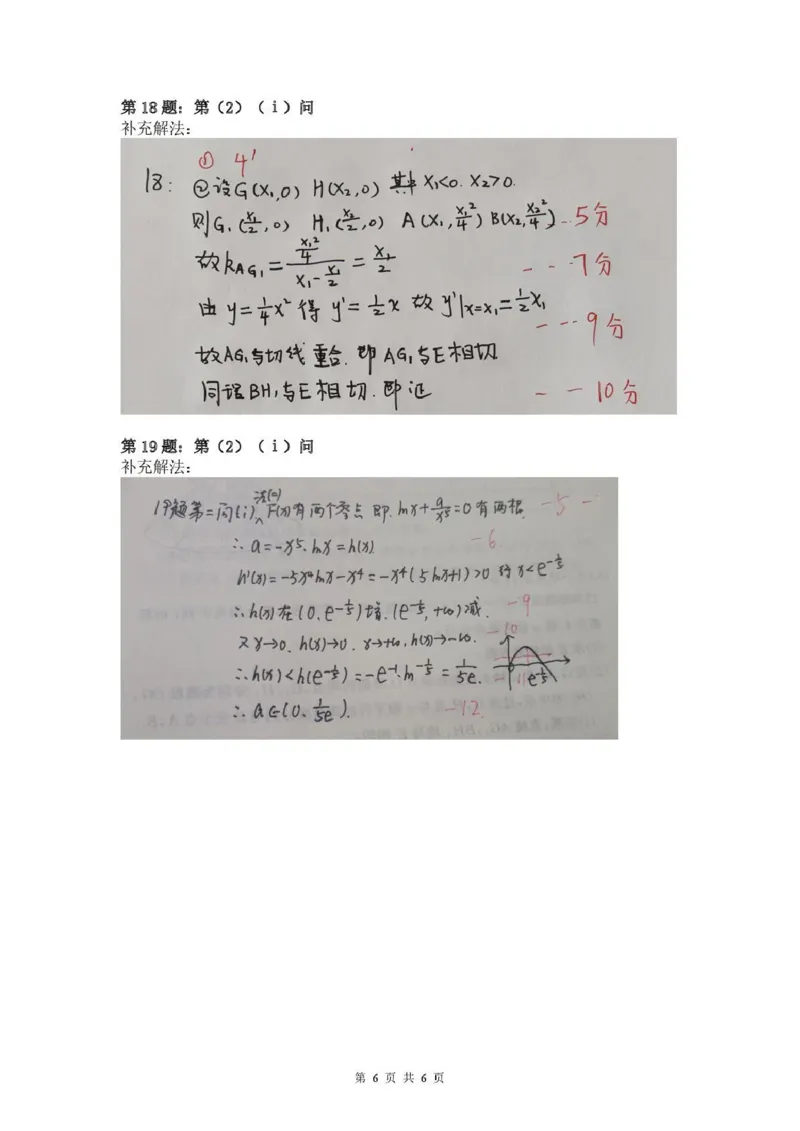 第18题：第（2）（ⅰ）问
补充解法：
① 4'
18: ②设G(x₁,0) H(x₂,0) 其中 x₁<0. x₂>0.
则G₁(x₁/2,0) H₁(x₂/2,0) A(x₁,x₁²/4) B(x₂,x₂²/4) --5分
故k_AG₁ = (x₁²/4)/(x₁-x₁/2) = x₁/2 ---7分
由 y=1/4x² 得 y'=1/2x 故 y'|x=x₁=1/2x₁ ---9分
故AG₁与切线重合. 即AG₁与E相切
同理BH₁与E相切. 即证 ---10分
第19题：第（2）（ⅰ）问
补充解法：
19题第二问(i) 法(二) F(x)有两个零点 即 lnx+a/x⁵=0有两根. -5-
∴ a=-x⁵·lnx=h(x) -6
h'(x)=-5x⁴lnx-x⁴=-x⁴(5lnx+1)>0 得 x<e^(-1/5)
∴h(x)在(0,e^(-1/5))增. (e^(-1/5),+∞)减. -9
又x→0. h(x)→0. x→+∞, h(x)→-∞. -10
∴h(x)<h(e^(-1/5))=-e⁻¹·ln^(-1/5)=1/5e. -11 e^(-1/5)
∴ a∈(0, 1/5e). -12
第 6 页 共 6 页